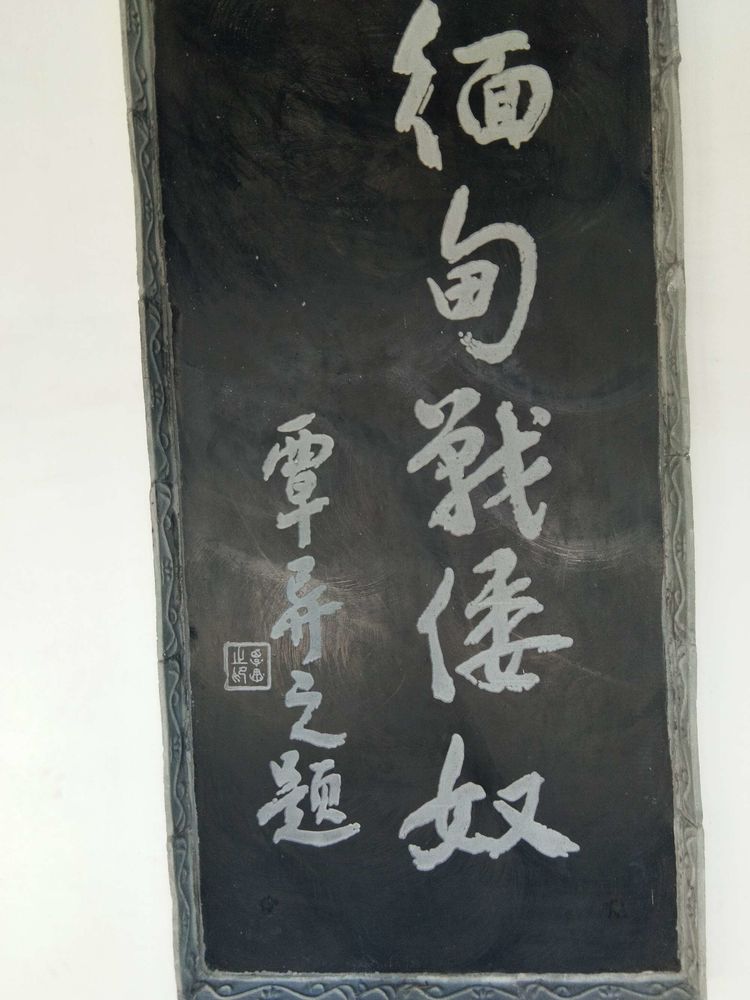 缅甸戰倭奴
覃异之题